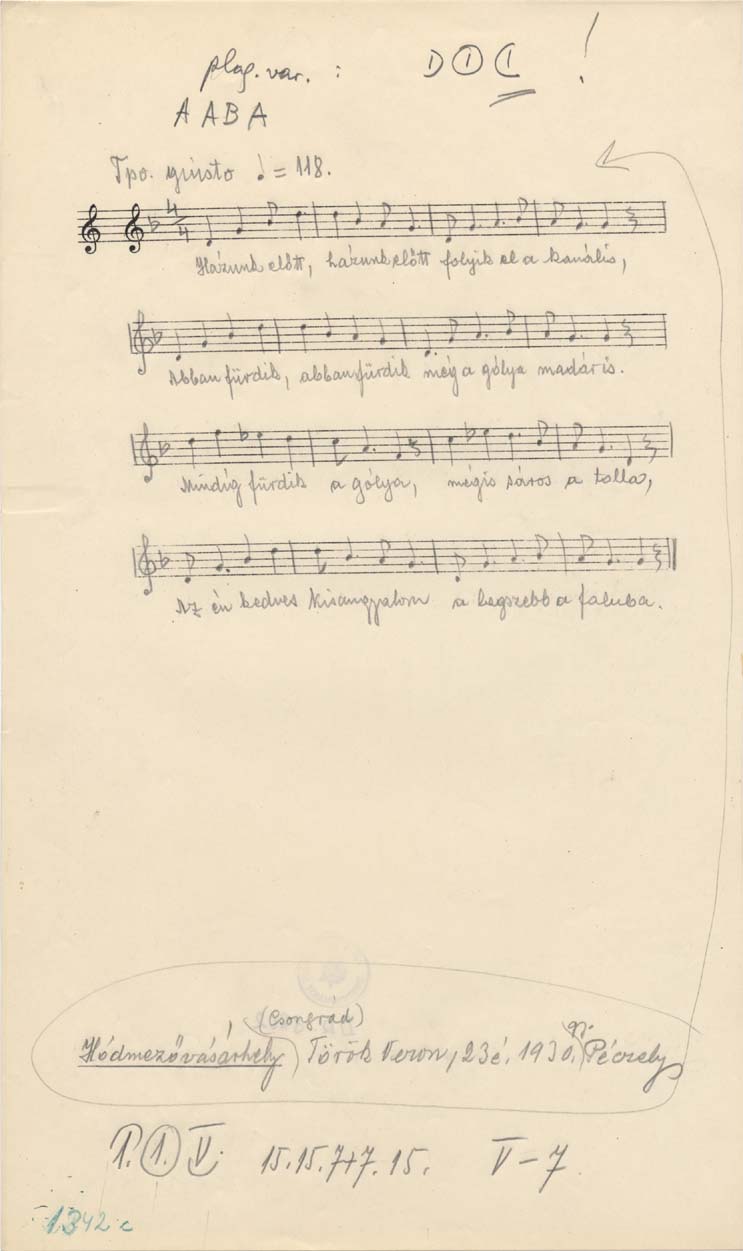 plag. var. : D Ⓘ C !
A A B A
Tpo. giusto ♩ = 118.
4/4
Házunk előtt, házunk előtt folyik el a kanális,
Abban fürdik, abban fürdik még a gólya madár is.
Mindig fürdik a gólya, mégis sáros a tolla,
Az én kedves kisangyalom a legszebb a faluba.
(Csongrád)
Hódmezővásárhely) Török Veron, 23 é. 1930. gy. Péczely
1. ①. V. 15.15.7+7.15. V–7.
1342 c